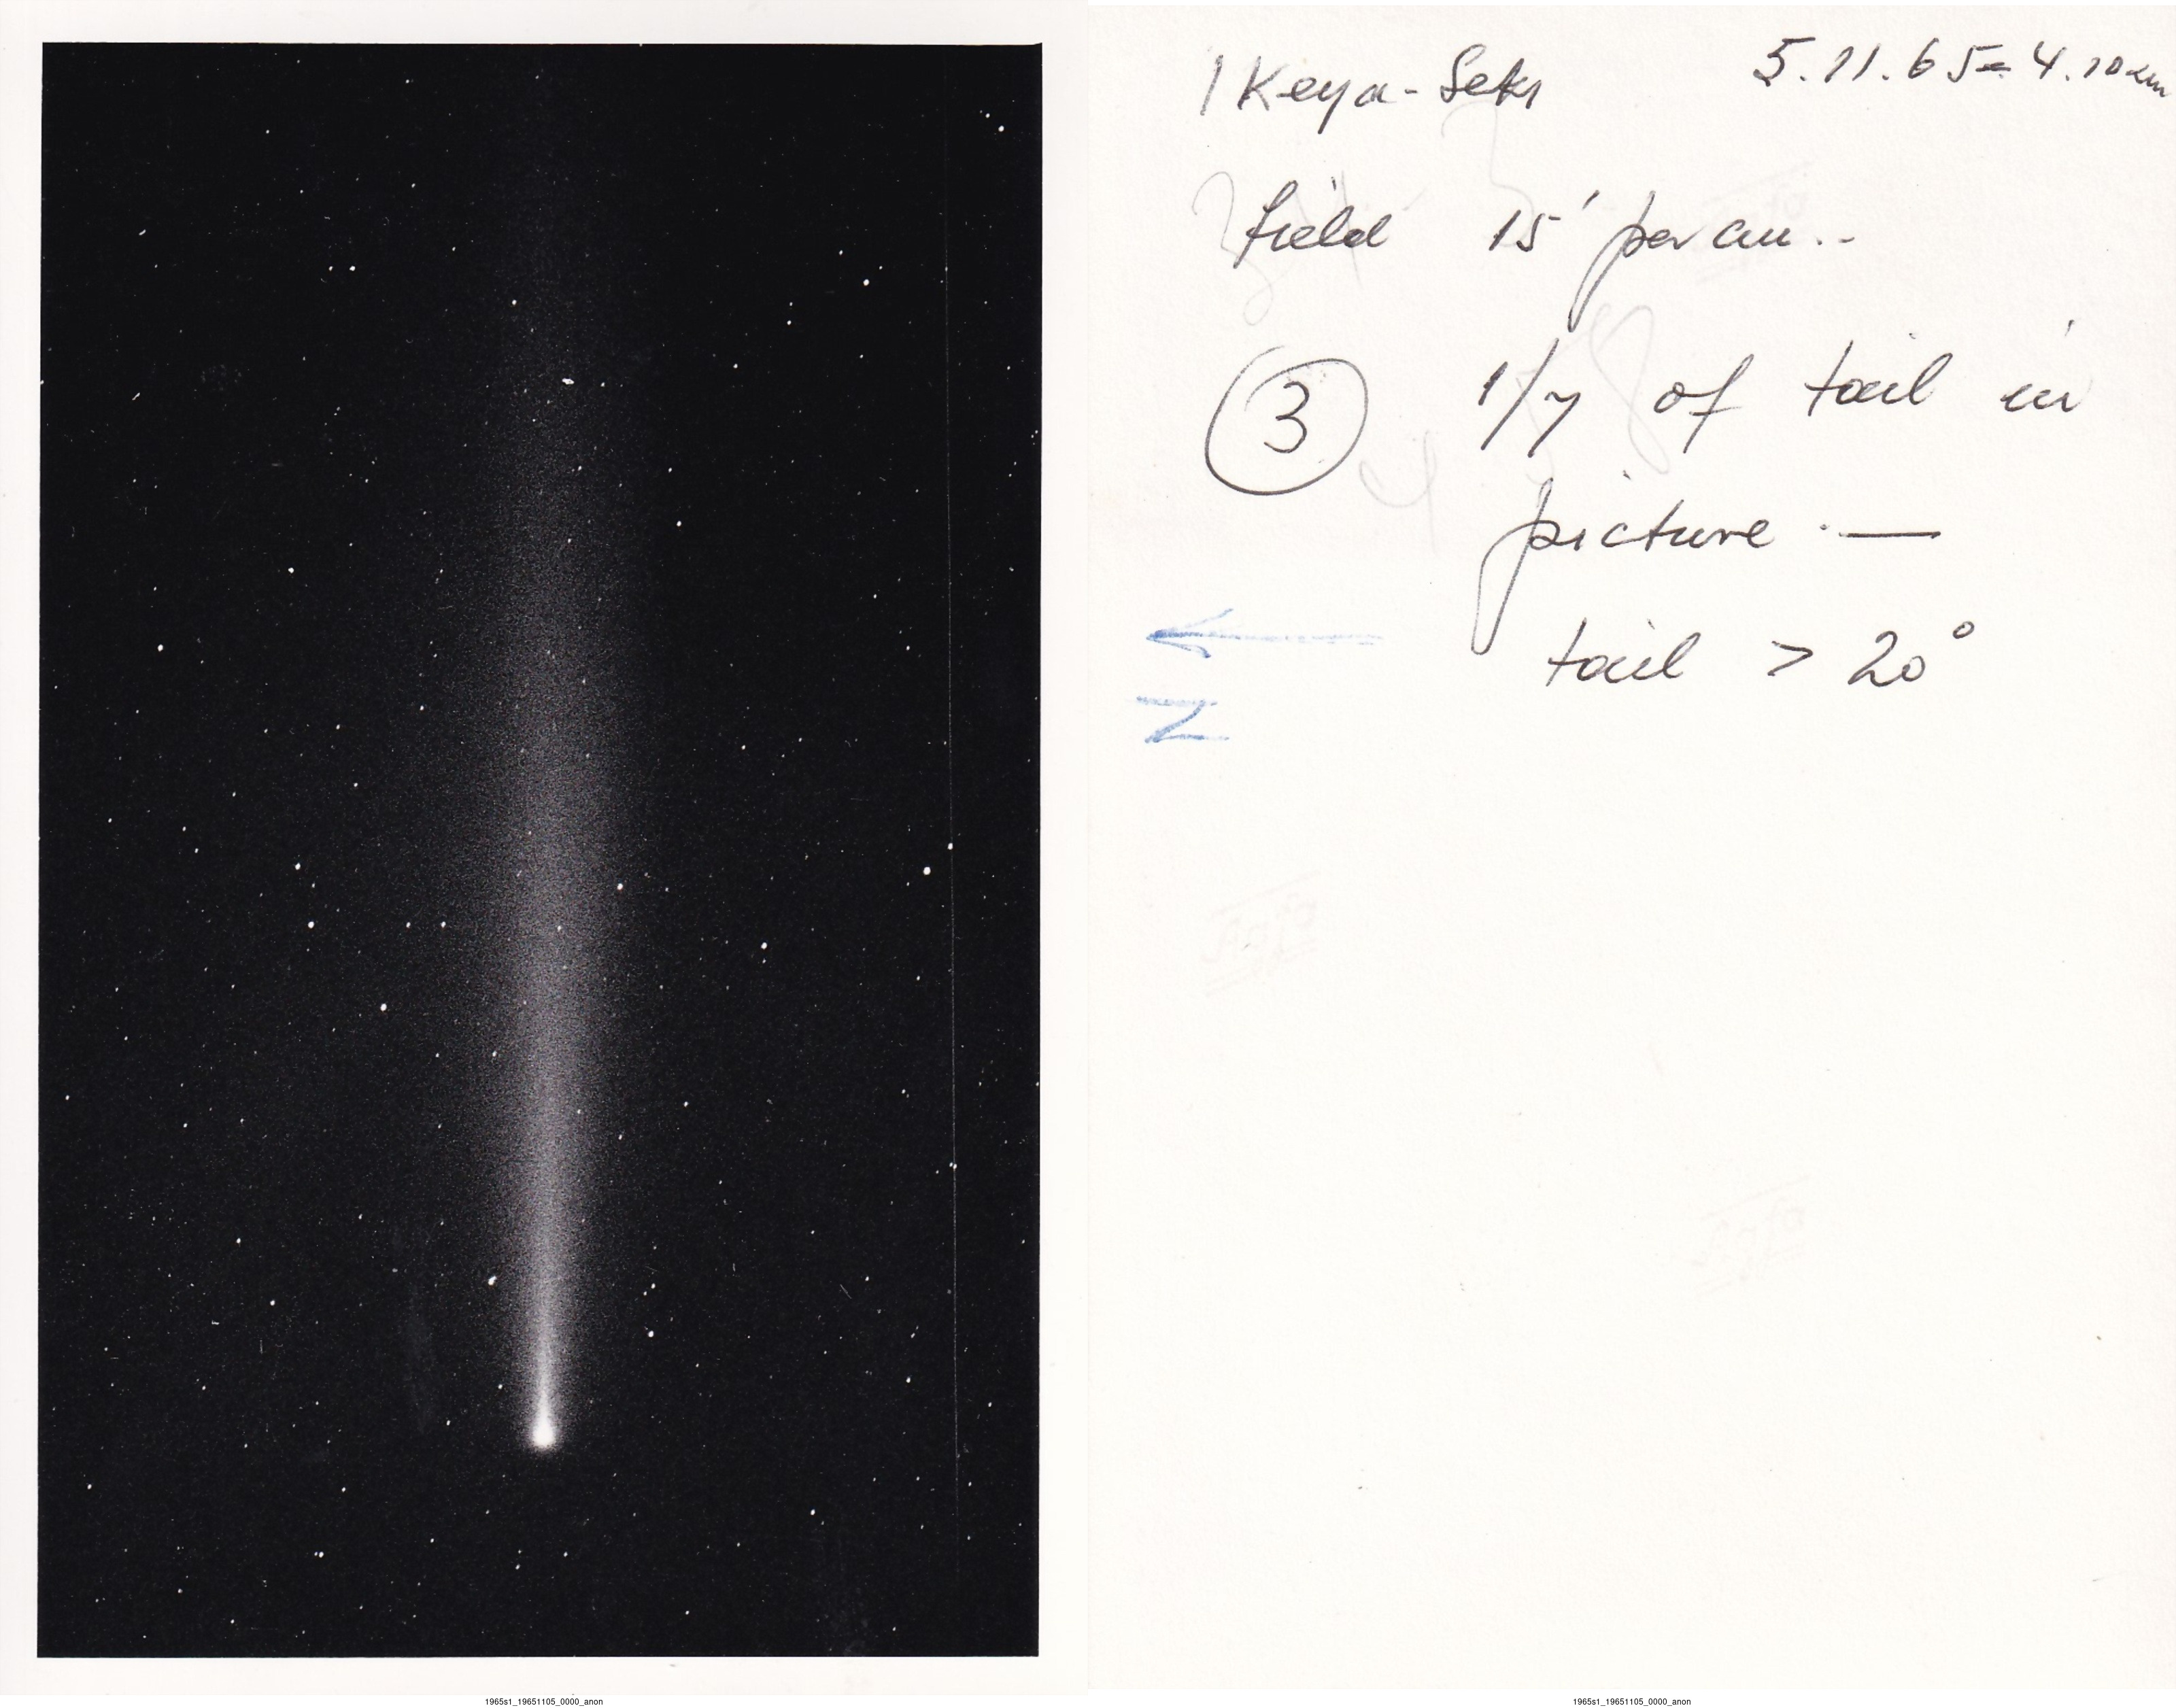 1 Keya-Seki 5.11.65= 4.10
field 15' per cm..
3 1/7 of tail in
picture . —
tail > 20°
N
1965s1_19651105_0000_anon 1965s1_19651105_0000_anon